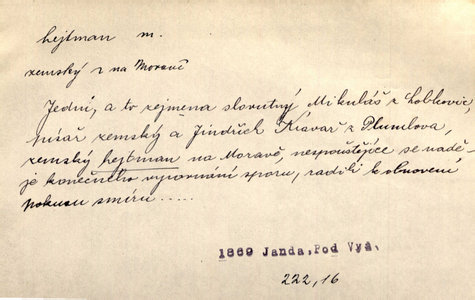 hejtman m.
zemský h na Moravě
Jedni, a to zejmena slovutný Mikuláš z Lobkovic,
písař zemský a Jindřich Kravař z Plumlova,
zemský hejtman na Moravě, nespouštějíce se nadě-
je konečného vyrovnání sporu, radili k obnovení
pokusu smíru.....
1869 Janda, Pod Vyš.
222, 16